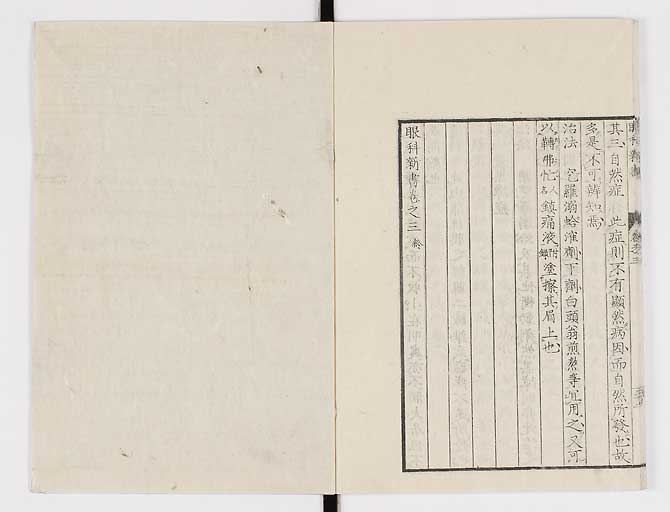 眼科新書 卷之三
其三自然症 此症則不有顯然病因而自然所發也故
多是不可辨知焉
治法 芑羅溺蛤滙劑下劑白頭翁煎熬等宜用之又可
以轉弗忙人名鎮痛液附錄塗擦其眉上也
眼科新書卷之三 終